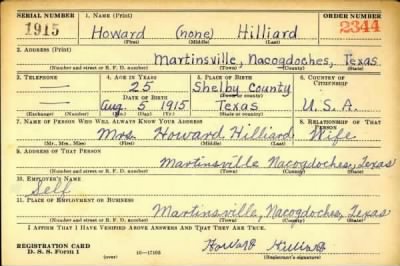 SERIAL NUMBER 1. NAME (Print) ORDER NUMBER
1915 Howard (none) Hilliard 2344
(First) (Middle) (Last)
2. ADDRESS (Print)
Martinsville, Nacogdoches, Texas
(Number and street or R. F. D. number) (Town) (County) (State)
3. TELEPHONE 4. AGE IN YEARS 5. PLACE OF BIRTH 6. COUNTRY OF CITIZENSHIP
— 25 Shelby County
DATE OF BIRTH (Town or county)
— Aug. 5 1915 Texas U.S.A.
(Exchange) (Number) (Mo.) (Day) (Yr.) (State or country)
7. NAME OF PERSON WHO WILL ALWAYS KNOW YOUR ADDRESS 8. RELATIONSHIP OF THAT PERSON
Mrs. Howard Hilliard Wife
(Mr., Mrs., Miss) (First) (Middle) (Last)
9. ADDRESS OF THAT PERSON
Martinsville Nacogdoches, Texas
(Number and street or R. F. D. number) (Town) (County) (State)
10. EMPLOYER'S NAME
Self
11. PLACE OF EMPLOYMENT OR BUSINESS
Martinsville, Nacogdoches, Texas
(Number and street or R. F. D. number) (Town) (County) (State)
I AFFIRM THAT I HAVE VERIFIED ABOVE ANSWERS AND THAT THEY ARE TRUE.
REGISTRATION CARD Howard Hilliard
D. S. S. Form 1 (over) 16—17105 (Registrant's signature)